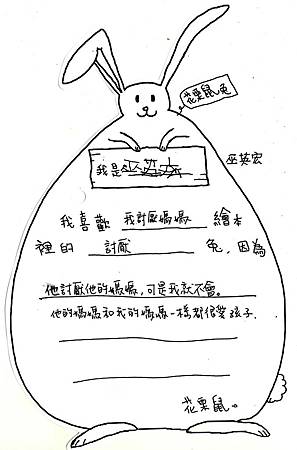 花栗鼠兔
我是巫英宏
巫英宏
我喜歡 我討厭媽媽 繪本
裡的 討厭 兔，因為
他討厭他的媽媽，可是我就不會。
他的媽媽和我的媽媽一樣都很愛孩子.
花栗鼠。